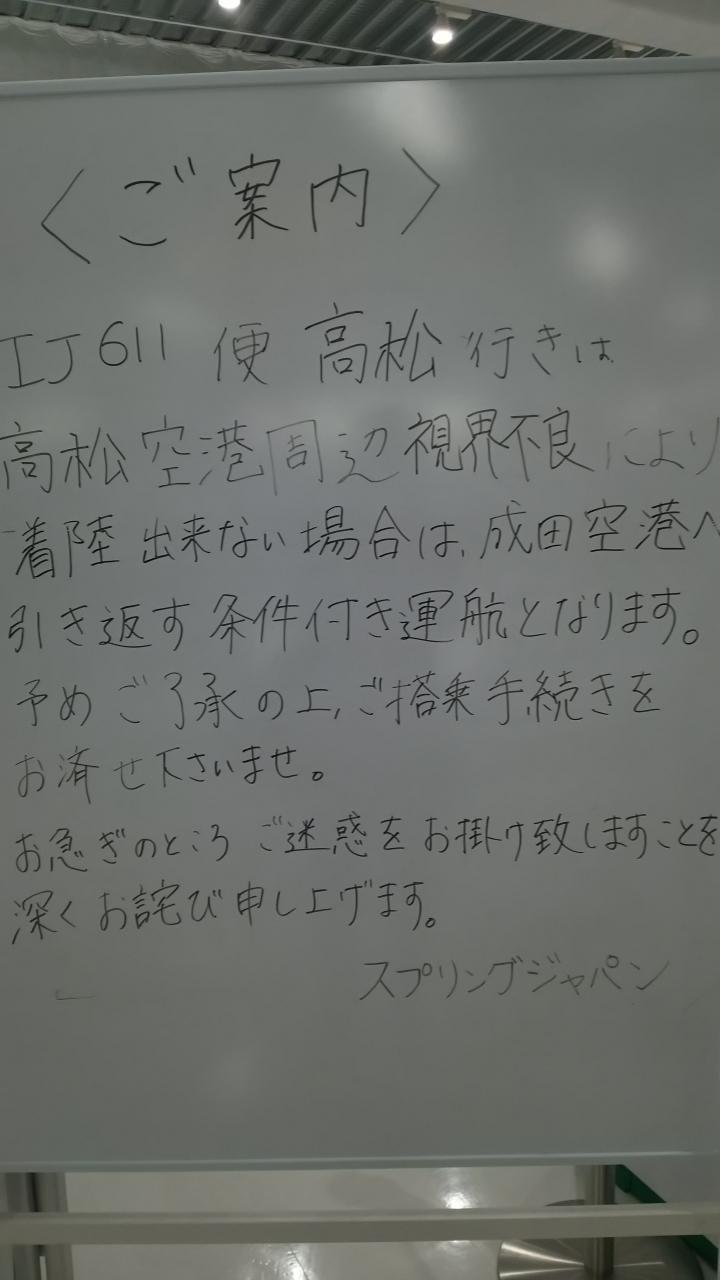 〈ご案内〉
IJ611便 高松行きは
高松空港周辺視界不良により
着陸出来ない場合は、成田空港へ
引き返す条件付き運航となります。
予めご了承の上、ご搭乗手続きを
お済せ下さいませ。
お急ぎのところ ご迷惑をお掛け致しますことを
深くお詫び申し上げます。
スプリングジャパン